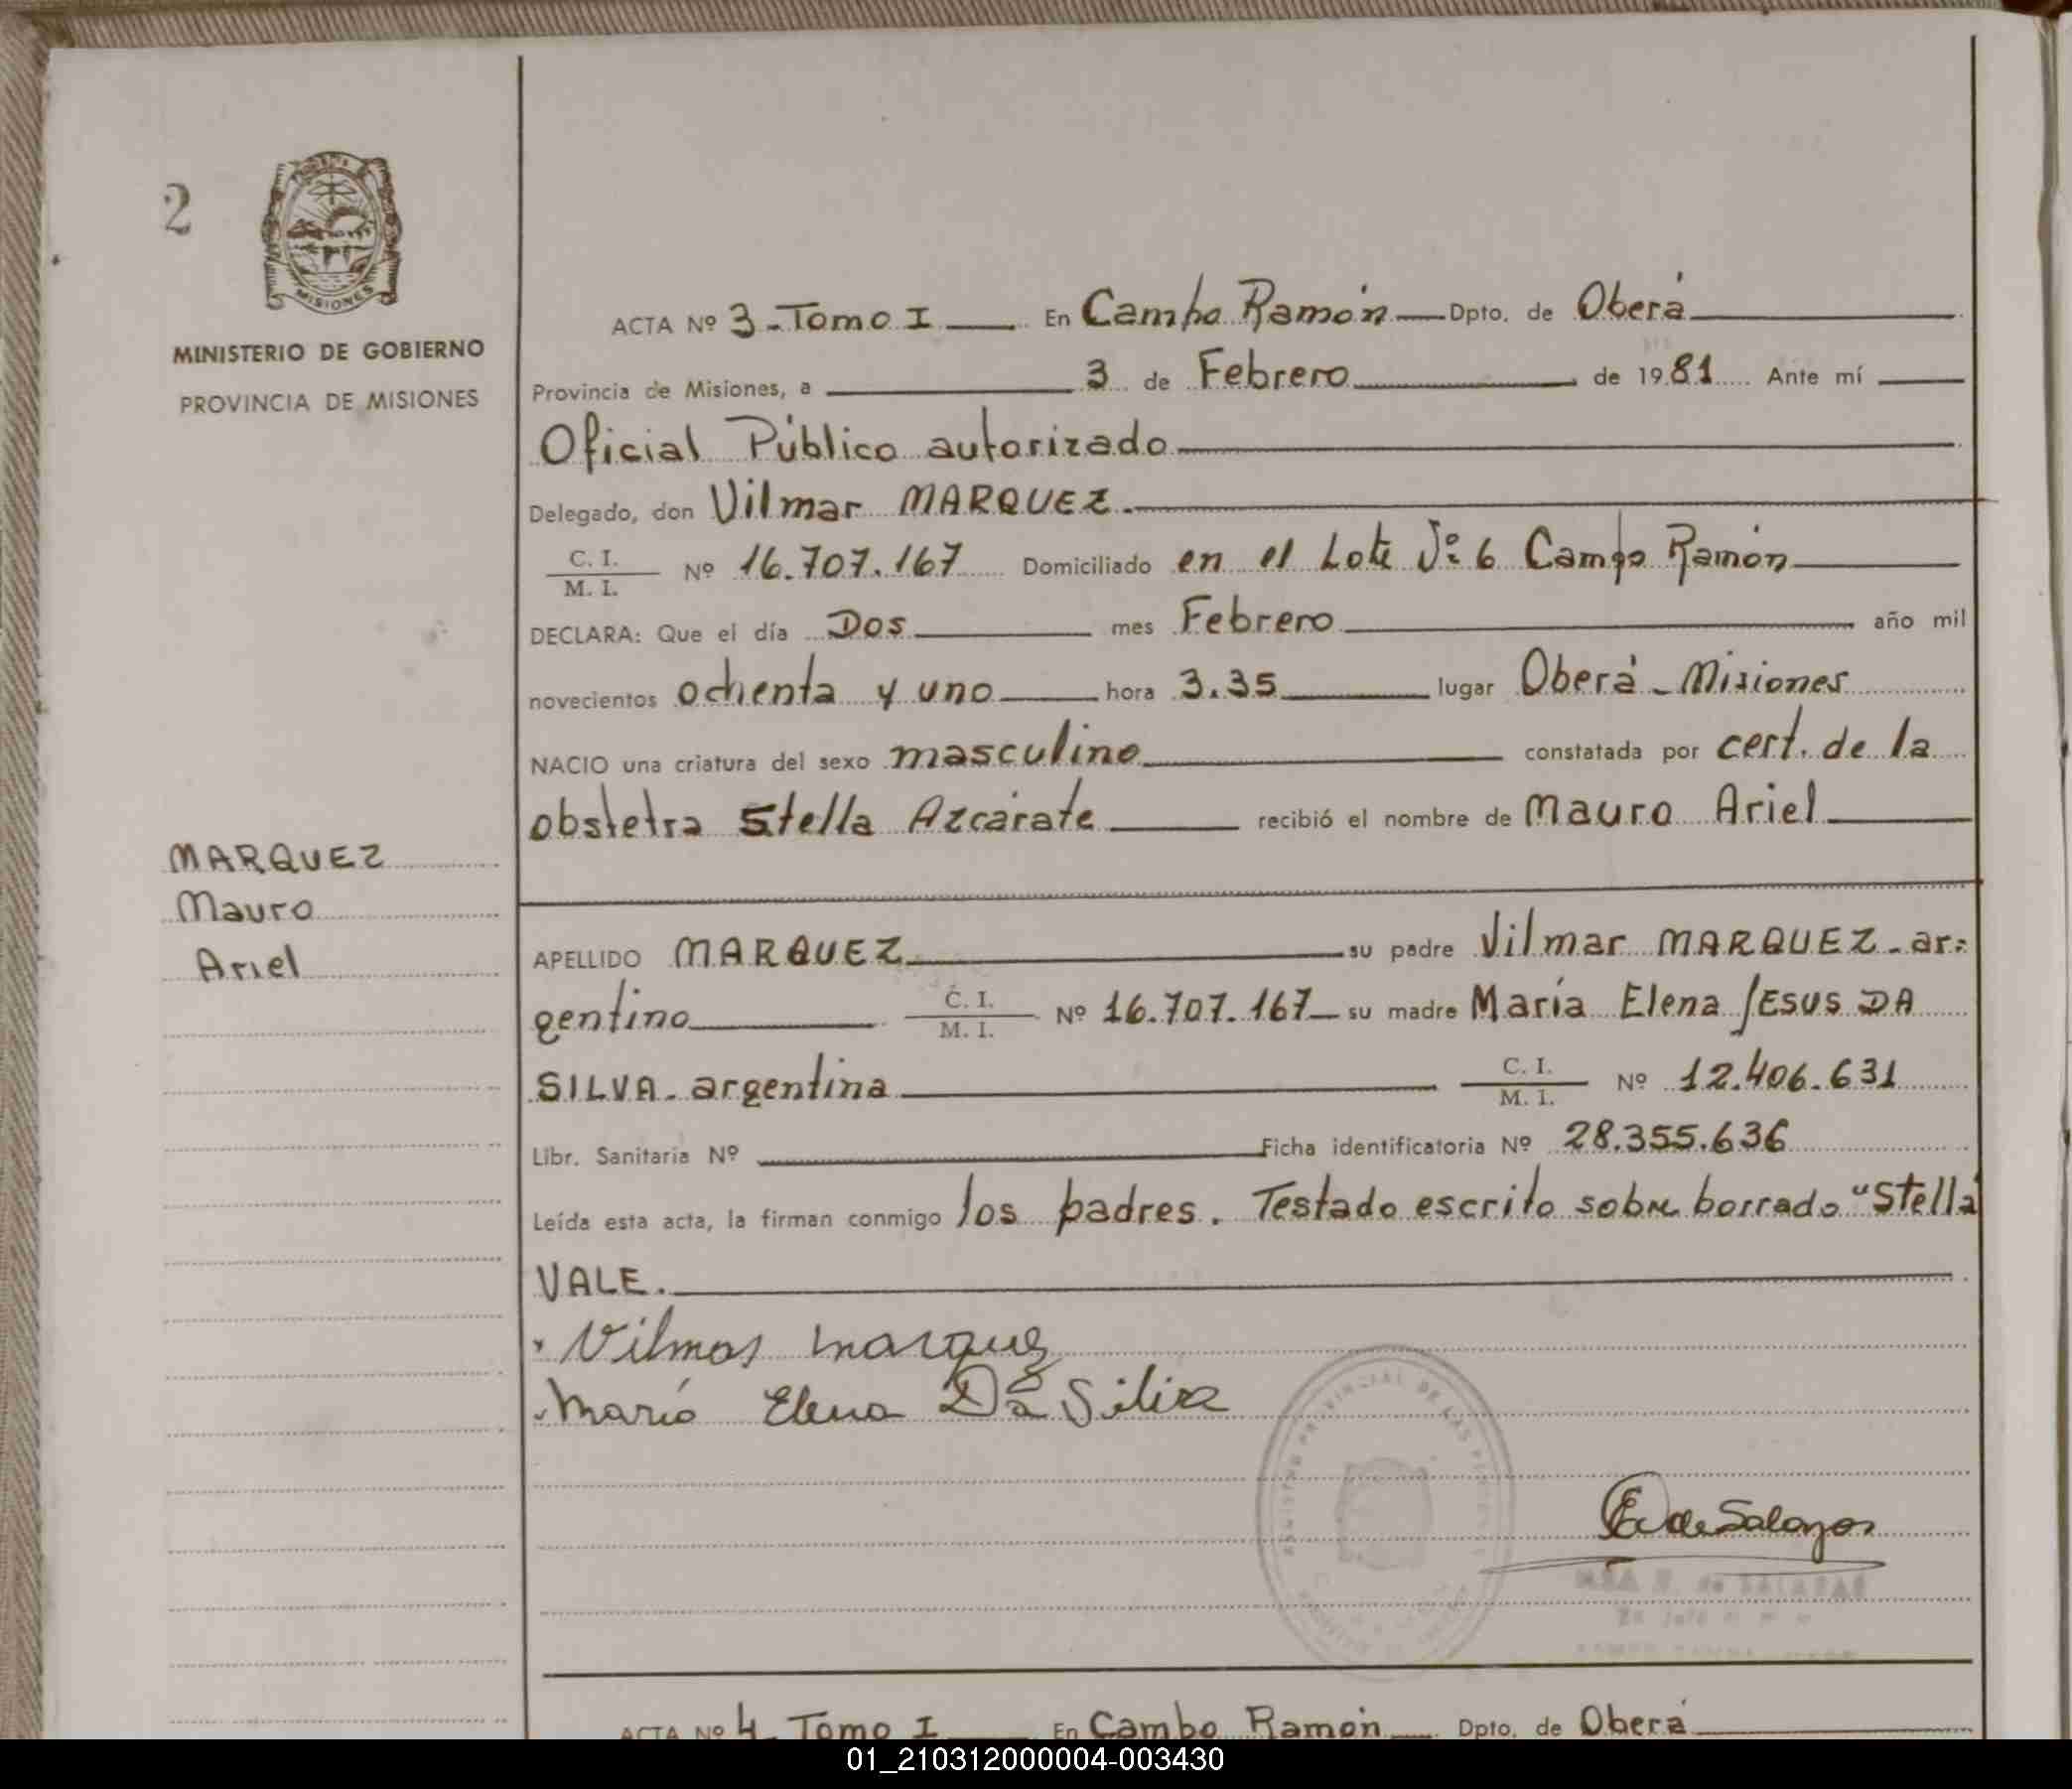 2
MISIONES
MINISTERIO DE GOBIERNO
PROVINCIA DE MISIONES
MARQUEZ
Mauro
Ariel
ACTA Nº 3-Tomo I En Campo Ramón Dpto. de Oberá
Provincia de Misiones, a 3 de Febrero de 1981 Ante mí
Oficial Público autorizado
Delegado, don Vilmar MARQUEZ.
C. I.
M. I. Nº 16.707.167 Domiciliado en el Lote Nº 6 Campo Ramón
DECLARA: Que el día Dos mes Febrero año mil
novecientos ochenta y uno hora 3.35 lugar Oberá - Misiones
NACIO una criatura del sexo masculino constatada por cert. de la
obstetra Stella Azcárate recibió el nombre de Mauro Ariel
APELLIDO MARQUEZ su padre Vilmar MARQUEZ - ar=
gentino C. I. M. I. Nº 16.707.167 su madre María Elena JESUS DA
SILVA - argentina C. I. M. I. Nº 12.406.631
Libr. Sanitaria Nº Ficha identificatoria Nº 28.355.636
Leída esta acta, la firman conmigo los padres. Testado escrito sobre borrado "Stella
VALE.
Vilmar Marquez
María Elena Da Silva
E de Salazar
ACTA Nº 4 Tomo I En Campo Ramón Dpto. de Oberá
01_210312000004-003430